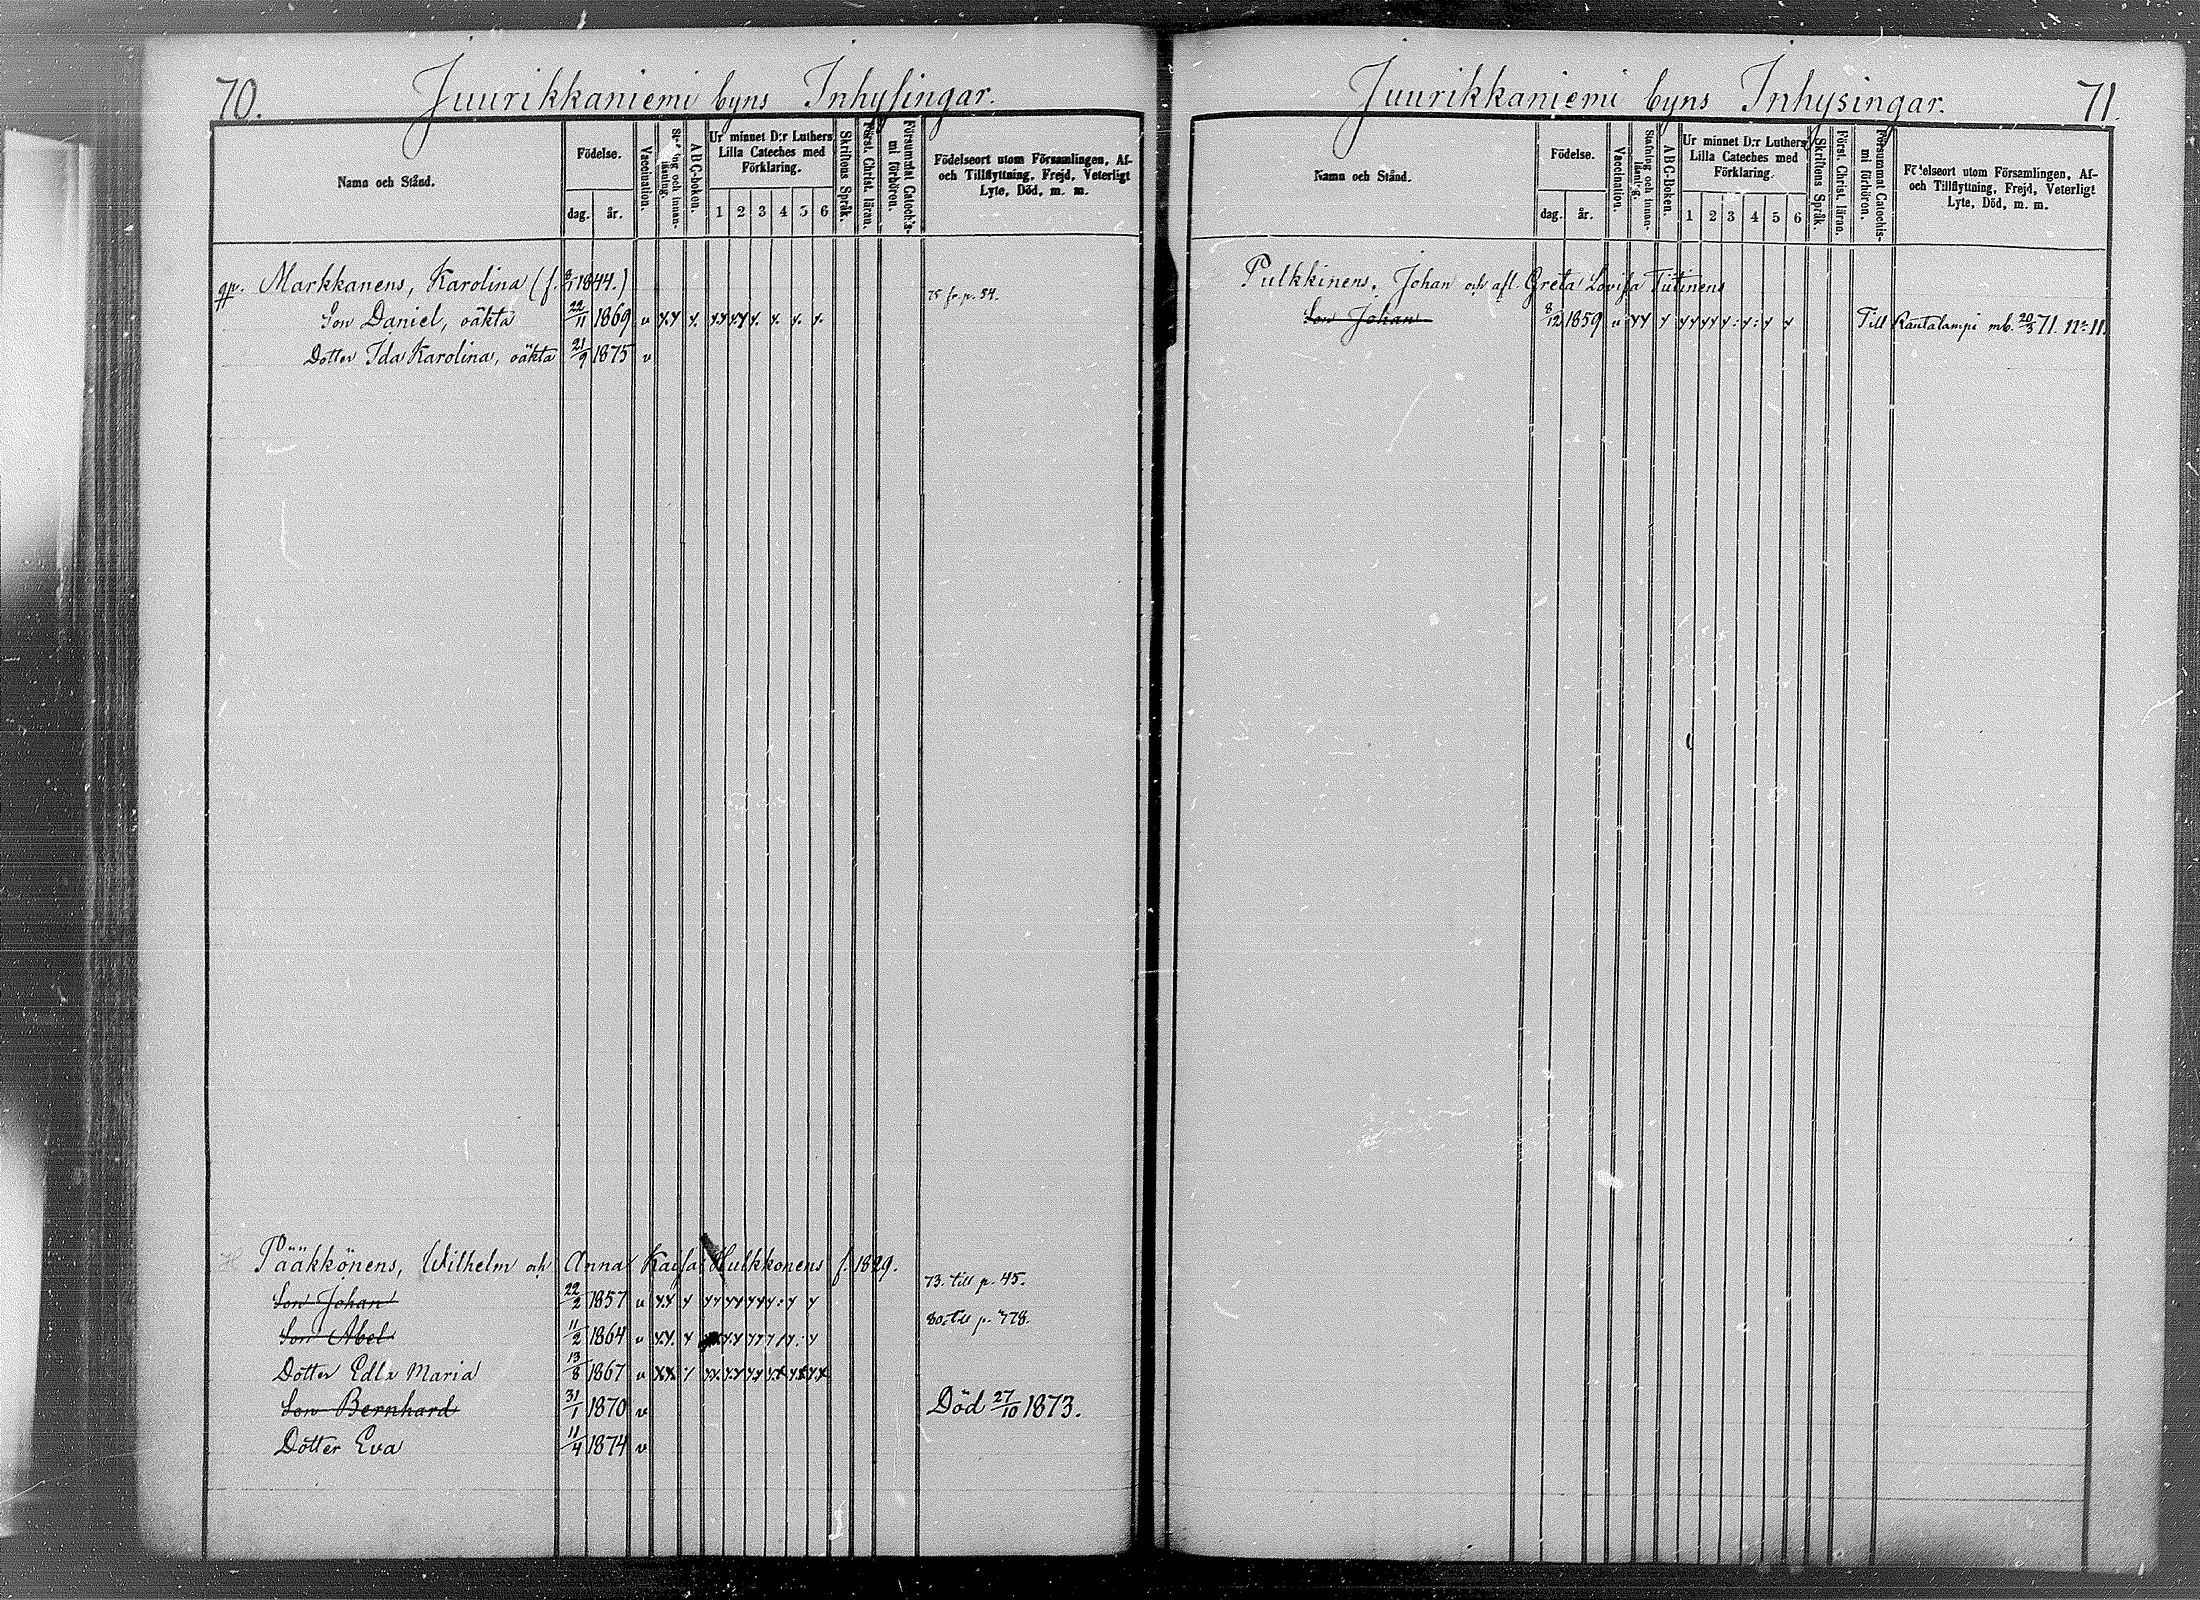 70.
Juurikkaniemi byns Inhysingar.
Namn och Stånd.
Födelse.
dag. år.
Vaccination.
Stafning och innanläsning.
ABC-boken.
Ur minnet D:r Luthers
Lilla Cateches med
Förklaring.
1 2 3 4 5 6
Skriftens Språk.
Först. Christ. läran.
Försummat Catechismi förhören.
Födelseort utom Församlingen, Af-
och Tillflyttning, Frejd, Veterligt
Lyte, Död, m. m.
Markkanens, Karolina (f. 1844.) 75 fr. p. 54.
Son Daniel, oäkta 22/11 1869 v
Dotter Ida Karolina, oäkta 21/9 1875 v
Pääkkönens, Wilhelm och Anna Kaisa Hulkkonens f. 1829.
Son Johan 22/2 1857 v 73. till p. 45.
Son Abel 11/2 1864 v 80. till p. 778.
Dotter Edla Maria 13/8 1867 v
Son Bernhard 31/1 1870 v Död 27/10 1873.
Dotter Eva 11/4 1874 v
Juurikkaniemi byns Inhysingar.
71.
Namn och Stånd.
Födelse.
dag. år.
Vaccination.
Stafning och innanläsning.
ABC-Boken.
Ur minnet D:r Luthers
Lilla Cateches med
Förklaring.
1 2 3 4 5 6
Skriftens Språk.
Först. Christ. läran.
Försummat Catechismi förhören.
Födelseort utom Församlingen, Af-
och Tillflyttning, Frejd, Veterligt
Lyte, Död, m. m.
Pulkkinens, Johan och afl. Greta Lovisa Tiitinens
Son Johan 8/12 1859 v Till Rautalampi mb. 20/3 71. No 11.